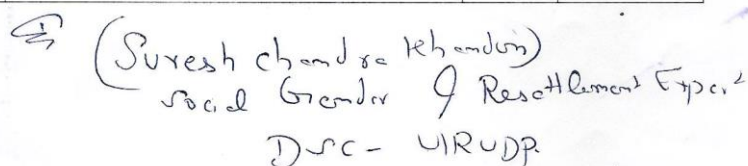 (Suresh chandra Khandur)
Social Gender & Resettlement Expert
DSC - UIRUDP.